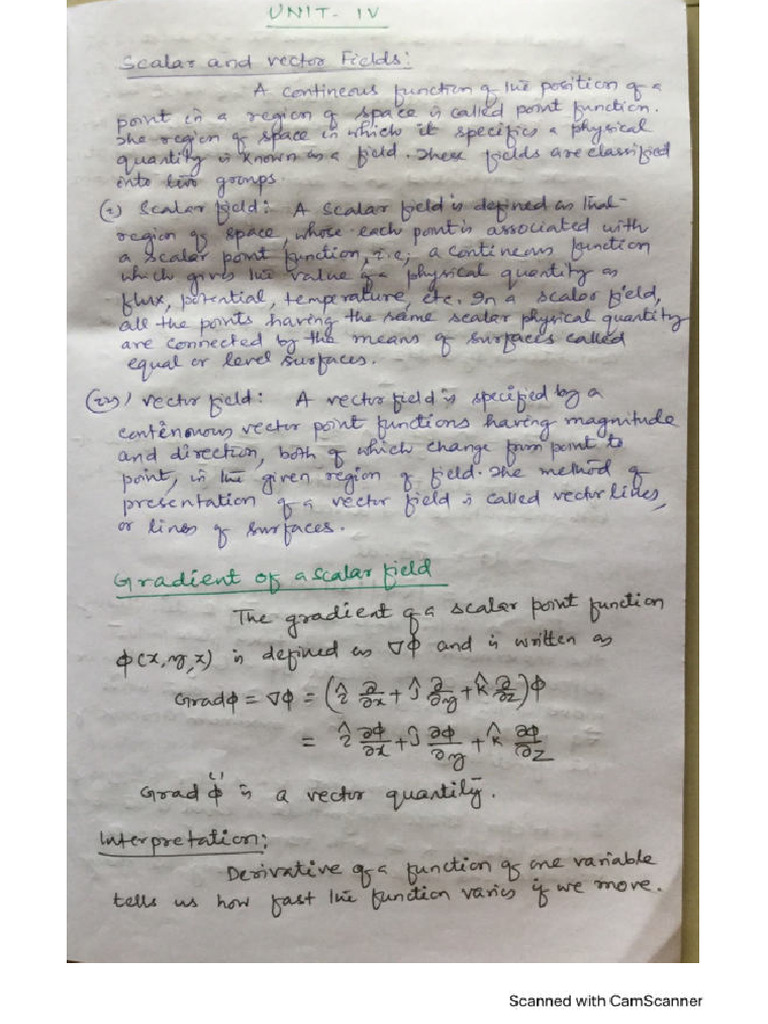 UNIT-IV
Scalar and vector Fields:
A contineous function of the position of a
point in a region of space is called point function.
The region of space in which it specifies a physical
quantity is known as a field. These fields are classified
into two groups.
(i) Scalar field: A scalar field is defined as that
region of space, whose each point is associated with
a scalar point function, i.e; a contineous function
which gives the value of a physical quantity as
flux, potential, temperature, etc. In a scalar field,
all the points having the same scalar physical quantity
are connected by the means of surfaces called
equal or level surfaces.
(ii) vector field: A vector field is specified by a
continuous vector point functions having magnitude
and direction, both of which change from point to
point, in the given region of field. The method of
presentation of a vector field is called vector lines,
or lines of surfaces.
Gradient of a scalar field
The gradient of a scalar point function
ϕ(x,y,x) is defined as ∇ϕ and is written as
Gradϕ = ∇ϕ = (î ∂/∂x + ĵ ∂/∂y + k̂ ∂/∂z)ϕ
= î ∂ϕ/∂x + ĵ ∂ϕ/∂y + k̂ ∂ϕ/∂z
Grad ϕ is a vector quantity.
Interpretation:
Derivative of a function of one variable
tells us how fast the function varies if we move.
Scanned with CamScanner